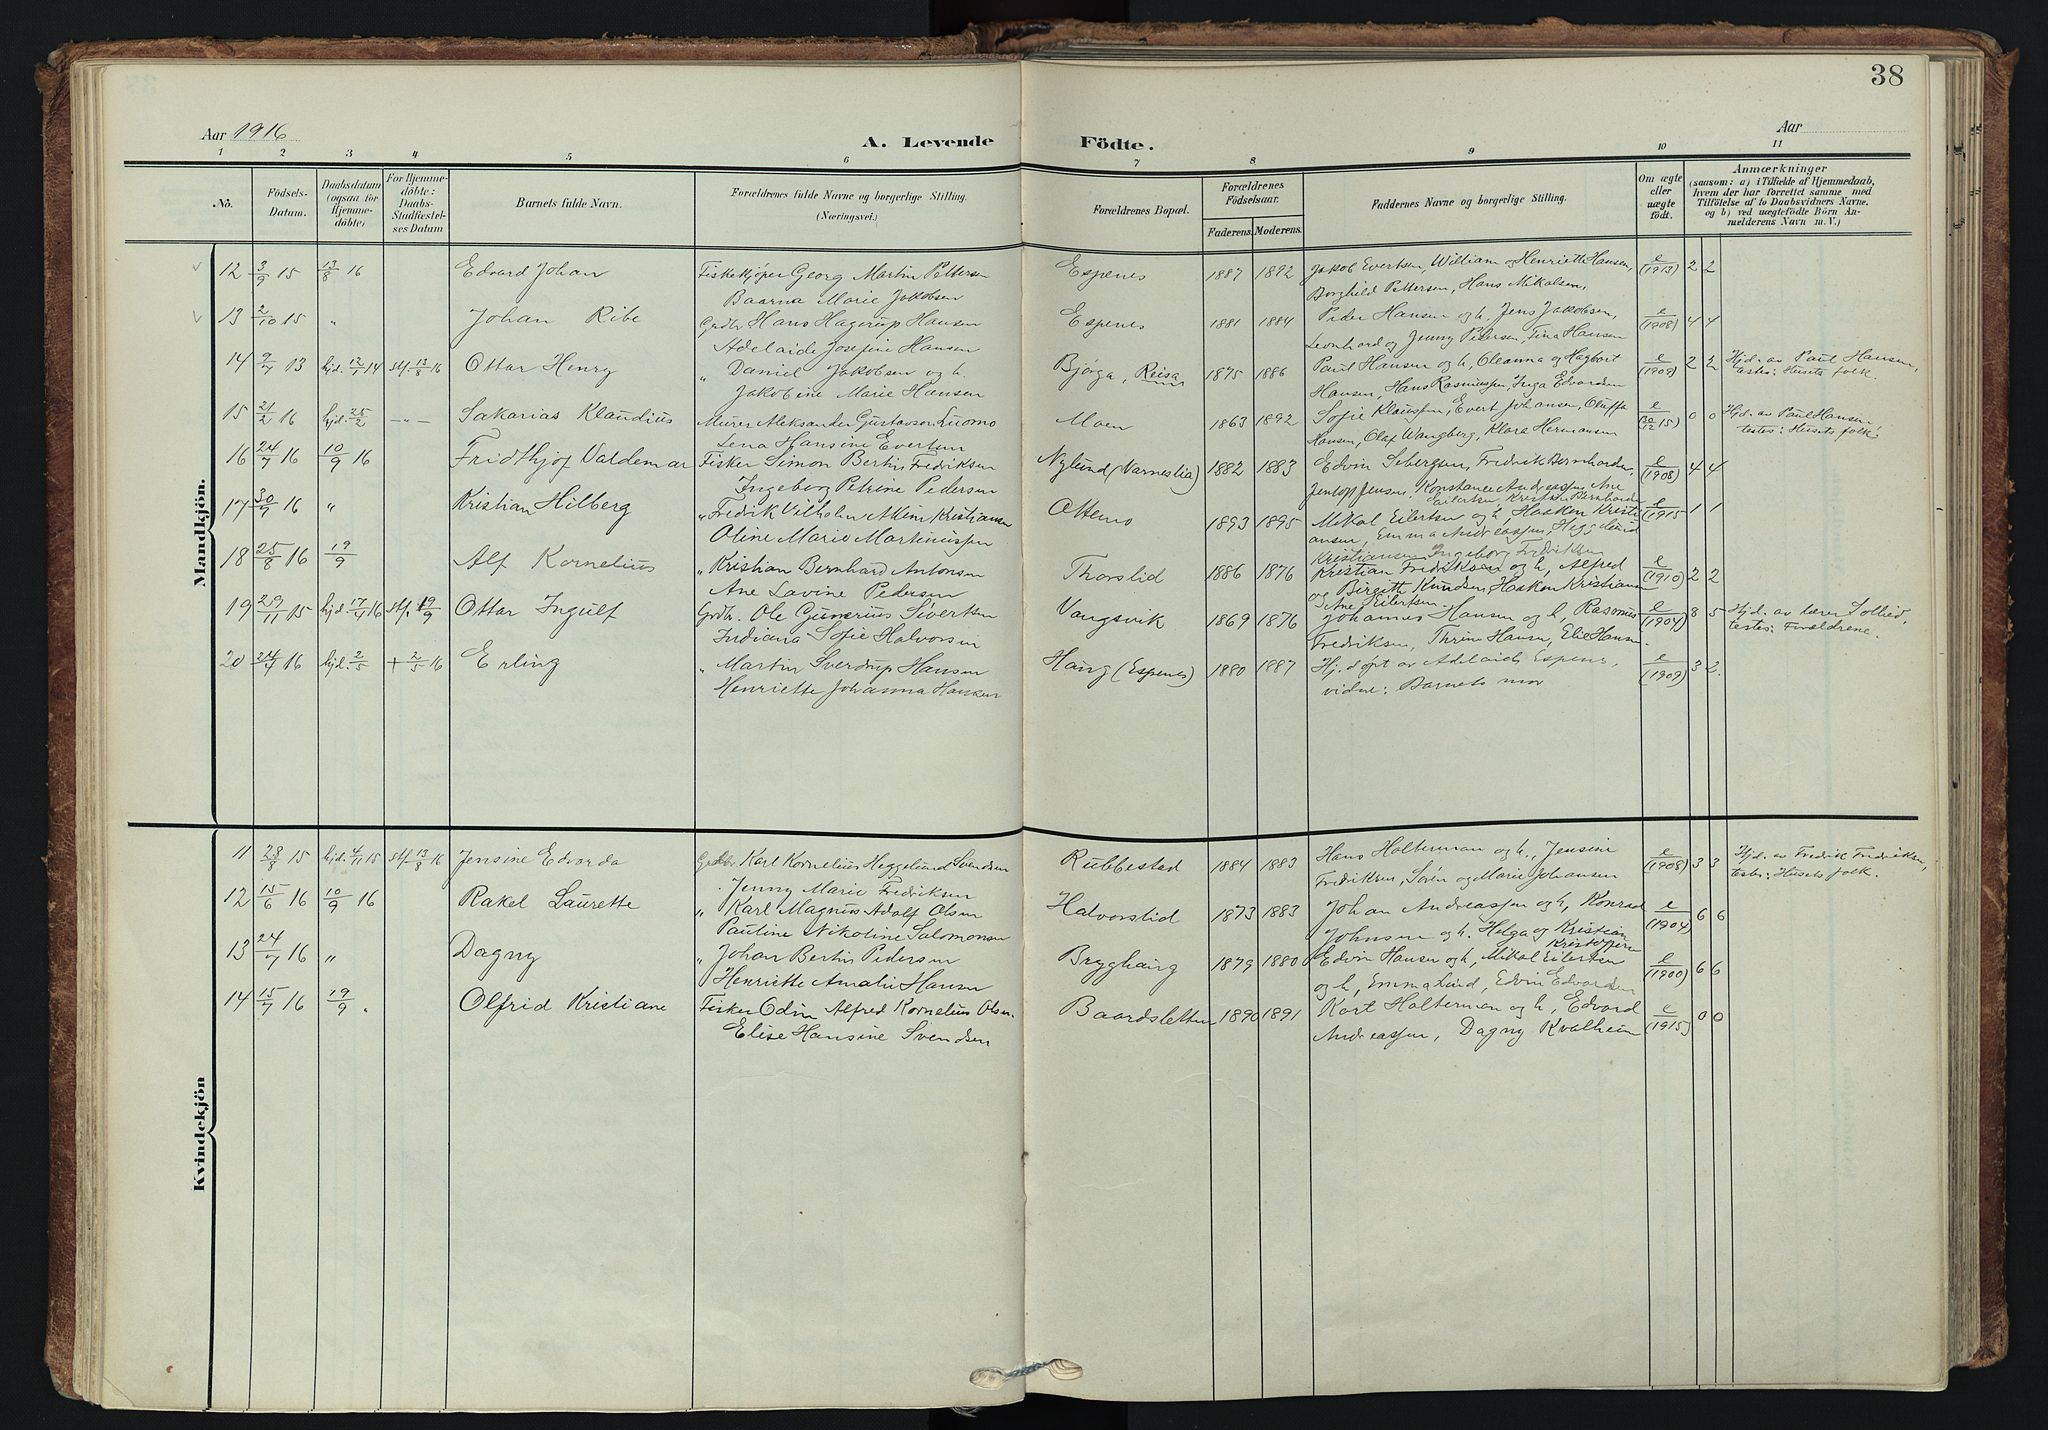 38
Aar 1916
A. Levende Födte.
Aar
1 2 3 4 5 6 7 8 9 10 11
No.
Födsels-Datum.
Daabsdatum (ogsaa for Hjemmedöbte)
For Hjemmedöbte: Daabs-Stadfæstelses Datum
Barnets fulde Navn.
Forældrenes fulde Navne og borgerlige Stilling. (Næringsvei.)
Forældrenes Bopæl.
Forældrenes Födselsaar.
Faderens. Moderens.
Faddernes Navne og borgerlige Stilling.
Om ægte eller uægte födt.
Anmærkninger
(saasom: a) i Tilfælde af Hjemmedaab, hvem der har forrettet samme med Tilföielse af to Daabsvidners Navne. og b) ved uægtefödte Börn Anmelderens Navn m. V.)
Mandkjön.
12 3/9 15 13/8 16 Edvard Johan Fiskekjøper Georg Martin Pettersen Espenes 1887 1892 Jakob Evertsen, William og Henriette Hansen, e (1913) 2 2
Baarna Marie Jakobsen Borghild Pettersen, Hans Mikalsen.
13 2/10 15 " Johan Ribe Grdbr Hans Hagerup Hansen Espenes 1881 1884 Peder Hansen og h, Jens Jakobsen, e (1908) 4 4
Adelaide Josefine Hansen Leonhard og Jenny Pedersen, Tina Hansen
14 9/7 13 hjd. 12/7 14 stf. 13/8 16 Ottar Henry " Daniel Jakobsen og h. Bjørga, Reisa 1875 1886 Paul Hansen og h, Oleanna og Hagbart e (1909) 2 2 Hjd. av Paul Hansen,
Jakobine Marie Hansen Hansen, Hans Rasmussen, Inga Edvardsen testes: Husets folk.
15 21/2 16 hjd. 25/2 -"- Sakarias Klaudius Murer Aleksander Gustavson Luomo Moen 1863 1892 Sofie Klaussen, Evert Johansen, Oluffa e (30/12 15) 0 0 Hjd. av Paul Hansen
Lena Hansine Evertsen Hansen, Olaf Wangberg, Klara Hermansen testes: Husets folk.
16 24/7 16 10/9 16 Fridthjof Valdemar Fisker Simon Bertin Fredriksen Nylund (Varneslia) 1882 1883 Edvin Sebergsen, Fredrik Bernhardsen, e (1908) 4 4
Ingeborg Petrine Pedersen Jentoft Jensen, Konstance Andreassen, Ane Eilertsen, Kristian Bernhardsen
17 30/7 16 " Kristian Hilberg " Fredrik Vilhelm Akim Kristiansen Ottemo 1893 1895 Mikal Eilertsen og h, Haakon Kristi e (1915 1 1
Oline Marie Martinussen ansen, Emma Andreassen, Heggelund Kristiansen, Ingeborg Fredriksen
18 25/8 16 19/9 Alf Kornelius " Kristian Bernhard Antonsen Thorslid 1886 1876 Kristian Fredriksen og h, Alfred e (1910) 2 2
Ane Lavine Pedersen og Birgitte Knudsen, Haakon Kristiansen Ane Eilertsen
19 29/11 15 hjd. 17/4 16 stf. 19/9 Ottar Ingulf Grdbr. Ole Gunerius Sivertsen Vangsvik 1869 1876 Johannes Hansen og h, Rasmus e (1904) 8 5 Hjd. av lærer Sollied,
Indiana Sofie Halvorsen Fredriksen, Thrine Hansen, Elie Hansen. testes: Forældrene.
20 24/4 16 hjd. 2/5 + 2/5 16 Erling " Martin Sverdrup Hansen Haug (Espenes) 1880 1887 Hj.døpt av Adelaide Espenes, e (1909) 3 2.
Henriette Johanna Hansen vidne: Barnets mor
Kvindekjön
11 28/8 15 hjd. 4/11 15 stf. 13/8 16 Jensine Edvarda Grdbr. Karl Kornelius Heggelund Svendsen Rubbestad 1884 1883 Hans Halterman og h., Jensine e (1908) 3 3 Hjd. av Fredrik Fredriksen,
Jenny Marie Fredriksen Fredriksen, Søren og Marie Johansen testes: Husets folk.
12 15/6 16 10/9 16 Rakel Laurette " Karl Magnus Adolf Olsen Halvorslid 1873 1883 Johan Andreassen og h, Konrad e (1904) 6 6
Pauline Nikoline Salomonsen Johnsen og h. Helga og Kristian Kristoffersen
13 24/7 16 " Dagny " Johan Bertin Pedersen Brygghaug 1879 1880 Edvin Hansen og h, Mikal Eilertsen e (1900) 6 6
Henriette Amalie Hansen og h, Emma Lind, Edvin Edvardsen
14 15/7 16 19/9 " Olfrid Kristiane Fisker Odin Alfred Kornelius Olsen. Baardsletten 1890 1891 Kort Halterman og h, Edvard e (1915) 0 0
Elise Hansine Svendsen Andreassen, Dagny Kvalheim